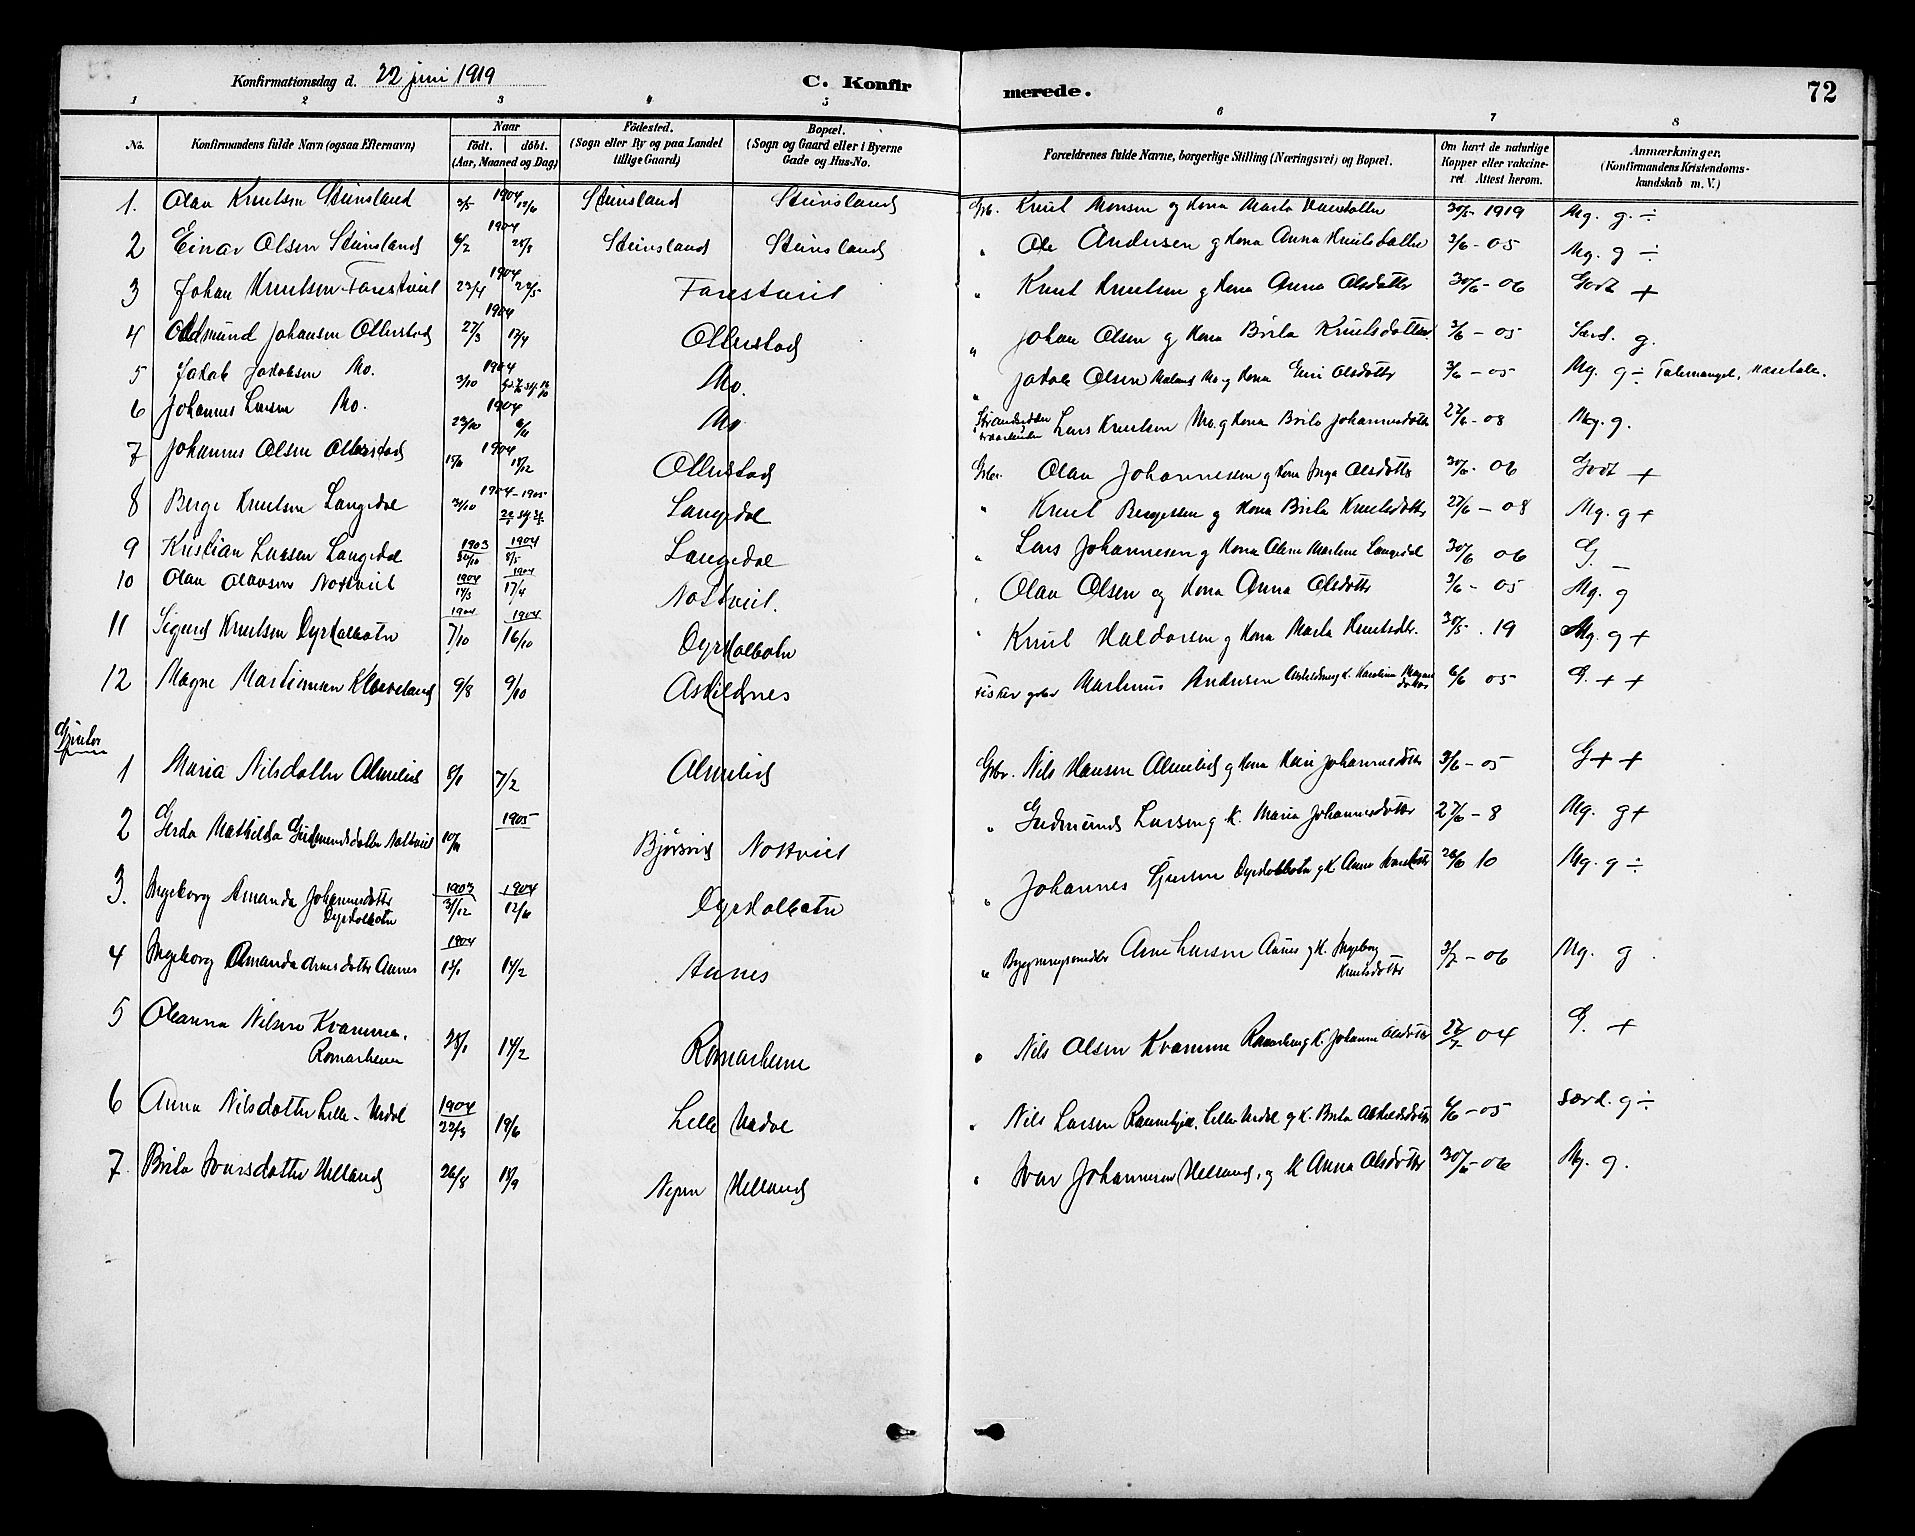 Konfirmationsdag d. 22 juni 1919 C. Konfirmerede. 72
1 2 3 4 5 6 7 8
No. Konfirmandens fulde Navn (ogsaa Efternavn) Naar født. døbt. (Aar, Maaned og Dag) Födested. (Sogn eller By og paa Landet tillige Gaard) Bopæl. (Sogn og Gaard eller i Byerne Gade og Hus-No. Forældrenes fulde Navne, borgerlige Stilling (Næringsvei) og Bopæl. Om havt de naturlige Kopper eller vakcineret Attest herom. Anmærkninger. (Konfirmandens Kristendomskundskab m. V.)
1. Olav Knutsen Steinsland 1904 12/6 Steinsland Steinsland Grb. Knut Monsen og Kona Marta 30/5 1919 Mg. g. ÷
2 Einar Olsen Steinsland 6/2 1904 28/3 Steinsland Steinsland " Ole Andersen og Kona Anna Knutsdatter 3/6 - 05 Mg. g ÷
3 Johan Knutsen Farestveit 23/4 1904 22/5 Farestveit " Knut Knutsen og Kona Anna Olsdotter 30/6 - 06 Godt +
4 Oddmund Johansen Ollerstad 27/3 1904 17/4 Ollerstad " Johan Olsen og Kona Brita Knutsdotter 3/6 - 05 Særd. g.
5 Jakob Jakobsen Mo. 3/10 1904 Mo. " Jakob Olsen Mo og Kona Eni Olsdotter 3/6 - 05 Mg. g ÷ Talemangel, nasetale.
6 Johannes Larsen Mo. 23/10 1904 6/11 Mo Lars Knutsen Mo. og Kona Brita Johannesdotter 27/6 - 08 Mg. g.
7 Johannes Olsen Ollerstad 15/11 1904 18/12 Ollerstad Grbr. Olav Johannesen og Kona Inga Olsdotter 30/6 - 06 Godt +
8 Berge Knutsen Langedal 31/10 1904 - 1905 Langedal " Knut Bergesen og Kona Brita Knutsdotter 27/6 - 08 Mg. g +
9 Kristian Larsen Langedal 1903 30/10 1904 8/5 Langedal " Lars Johannesen og Kona Oline Martine Langedal 30/6 06 G. –
10 Olav Olavsen Nottveit 1904 14/3 1904 17/4 Nottveit. " Olav Olsen og Kona Anna Olsdotter 3/6 - 05 Mg. g
11 Sigurd Knutsen Dyrkolbotn 1904 7/10 1904 16/10 Dyrkolbotn " Knut Haldorsen og Kona Marta Knutsdtr. 30/5 . 19 Mg. g +
12 Magne Martinusen Kleiveland 9/8 9/10 Askildnes Fisker grbr Martinus Andersen Askildsnes og K. Karolina 6/6 05 G. + +
Gjentor
1 Maria Nilsdatter Almelid 8/1 7/2 Almelid Grbr. Nils Hansen Almelid og Kona Kari Johannesdotter 3/6 - 05 G + +
2 Gerda Mathilda Gudmundsdotter Nottveit 10/11 1905 Bjørsvik Nottveit " Gudmund Larsen og K. Maria Johannesdotter 27/6 - 8 Mg. g +
3. Ingeborg Amanda Johannesdotter Dyrkolbotn 1903 31/12 1904 12/6 Dyrkolbotn " Johannes Dyrkolbotn og K Anna 26/6 10 Mg. g ÷
4 Ingeborg Amanda Arnesdotter Aanes 1904 13/1 14/2 Aanes " Bygningssnedker Arne Larsen Aanes og K. Ingeborg Knutsdotter 3/7 - 06 Mg. g.
5 Oleanna Nilsine Kvamme, Romarheim 28/1 14/2 Romarheim " Nils Olsen Kvamme Romarheim og K. Johanne Olsdotter 27/7 04 G. +
6 Anna Nilsdotter Lille-Urdal 1904 22/3 19/6 Lille Urdal " Nils Larsen Lille Urdal og K. Brita Askildsdotter 6/6 - 05 Særd. g ÷
7. Brita Ivarsdotter Helland 26/8 18/9 Nipen Helland " Ivar Johannesen Helland, og K Anna Olsdotter 30/6 - 06 Mg. g.